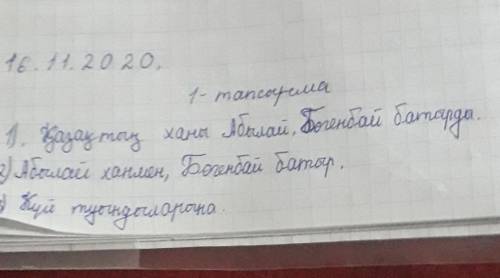 16.11.2020.
1-тапсырма
1). Қазақтың ханы Абылай, Бөгенбай батырды.
2) Абылай ханмен, Бөгенбай батыр.
) Күй туындыларына.